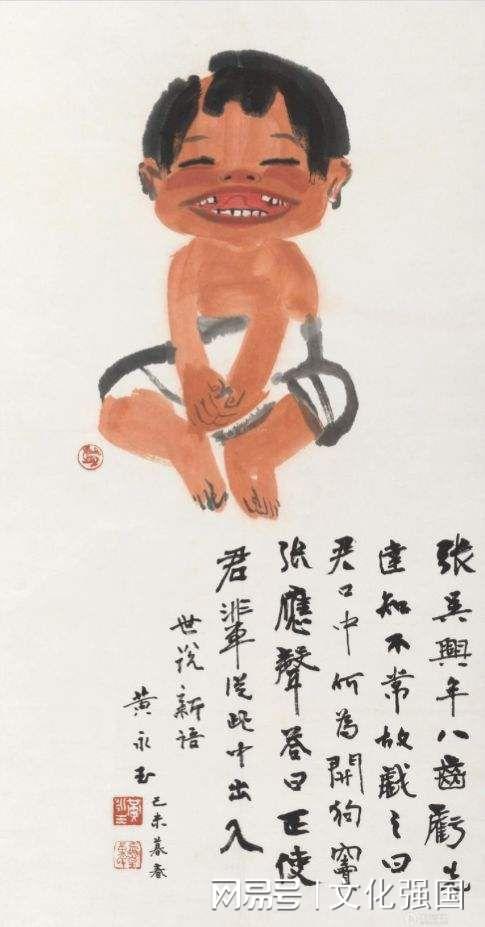 張吳興年八齒虧先
達知不常故戲之曰
君口中何為開狗竇
張應聲答曰正使
君輩從此中出入
世說新語
黃永玉
己未暮春
网易号 | 文化强国